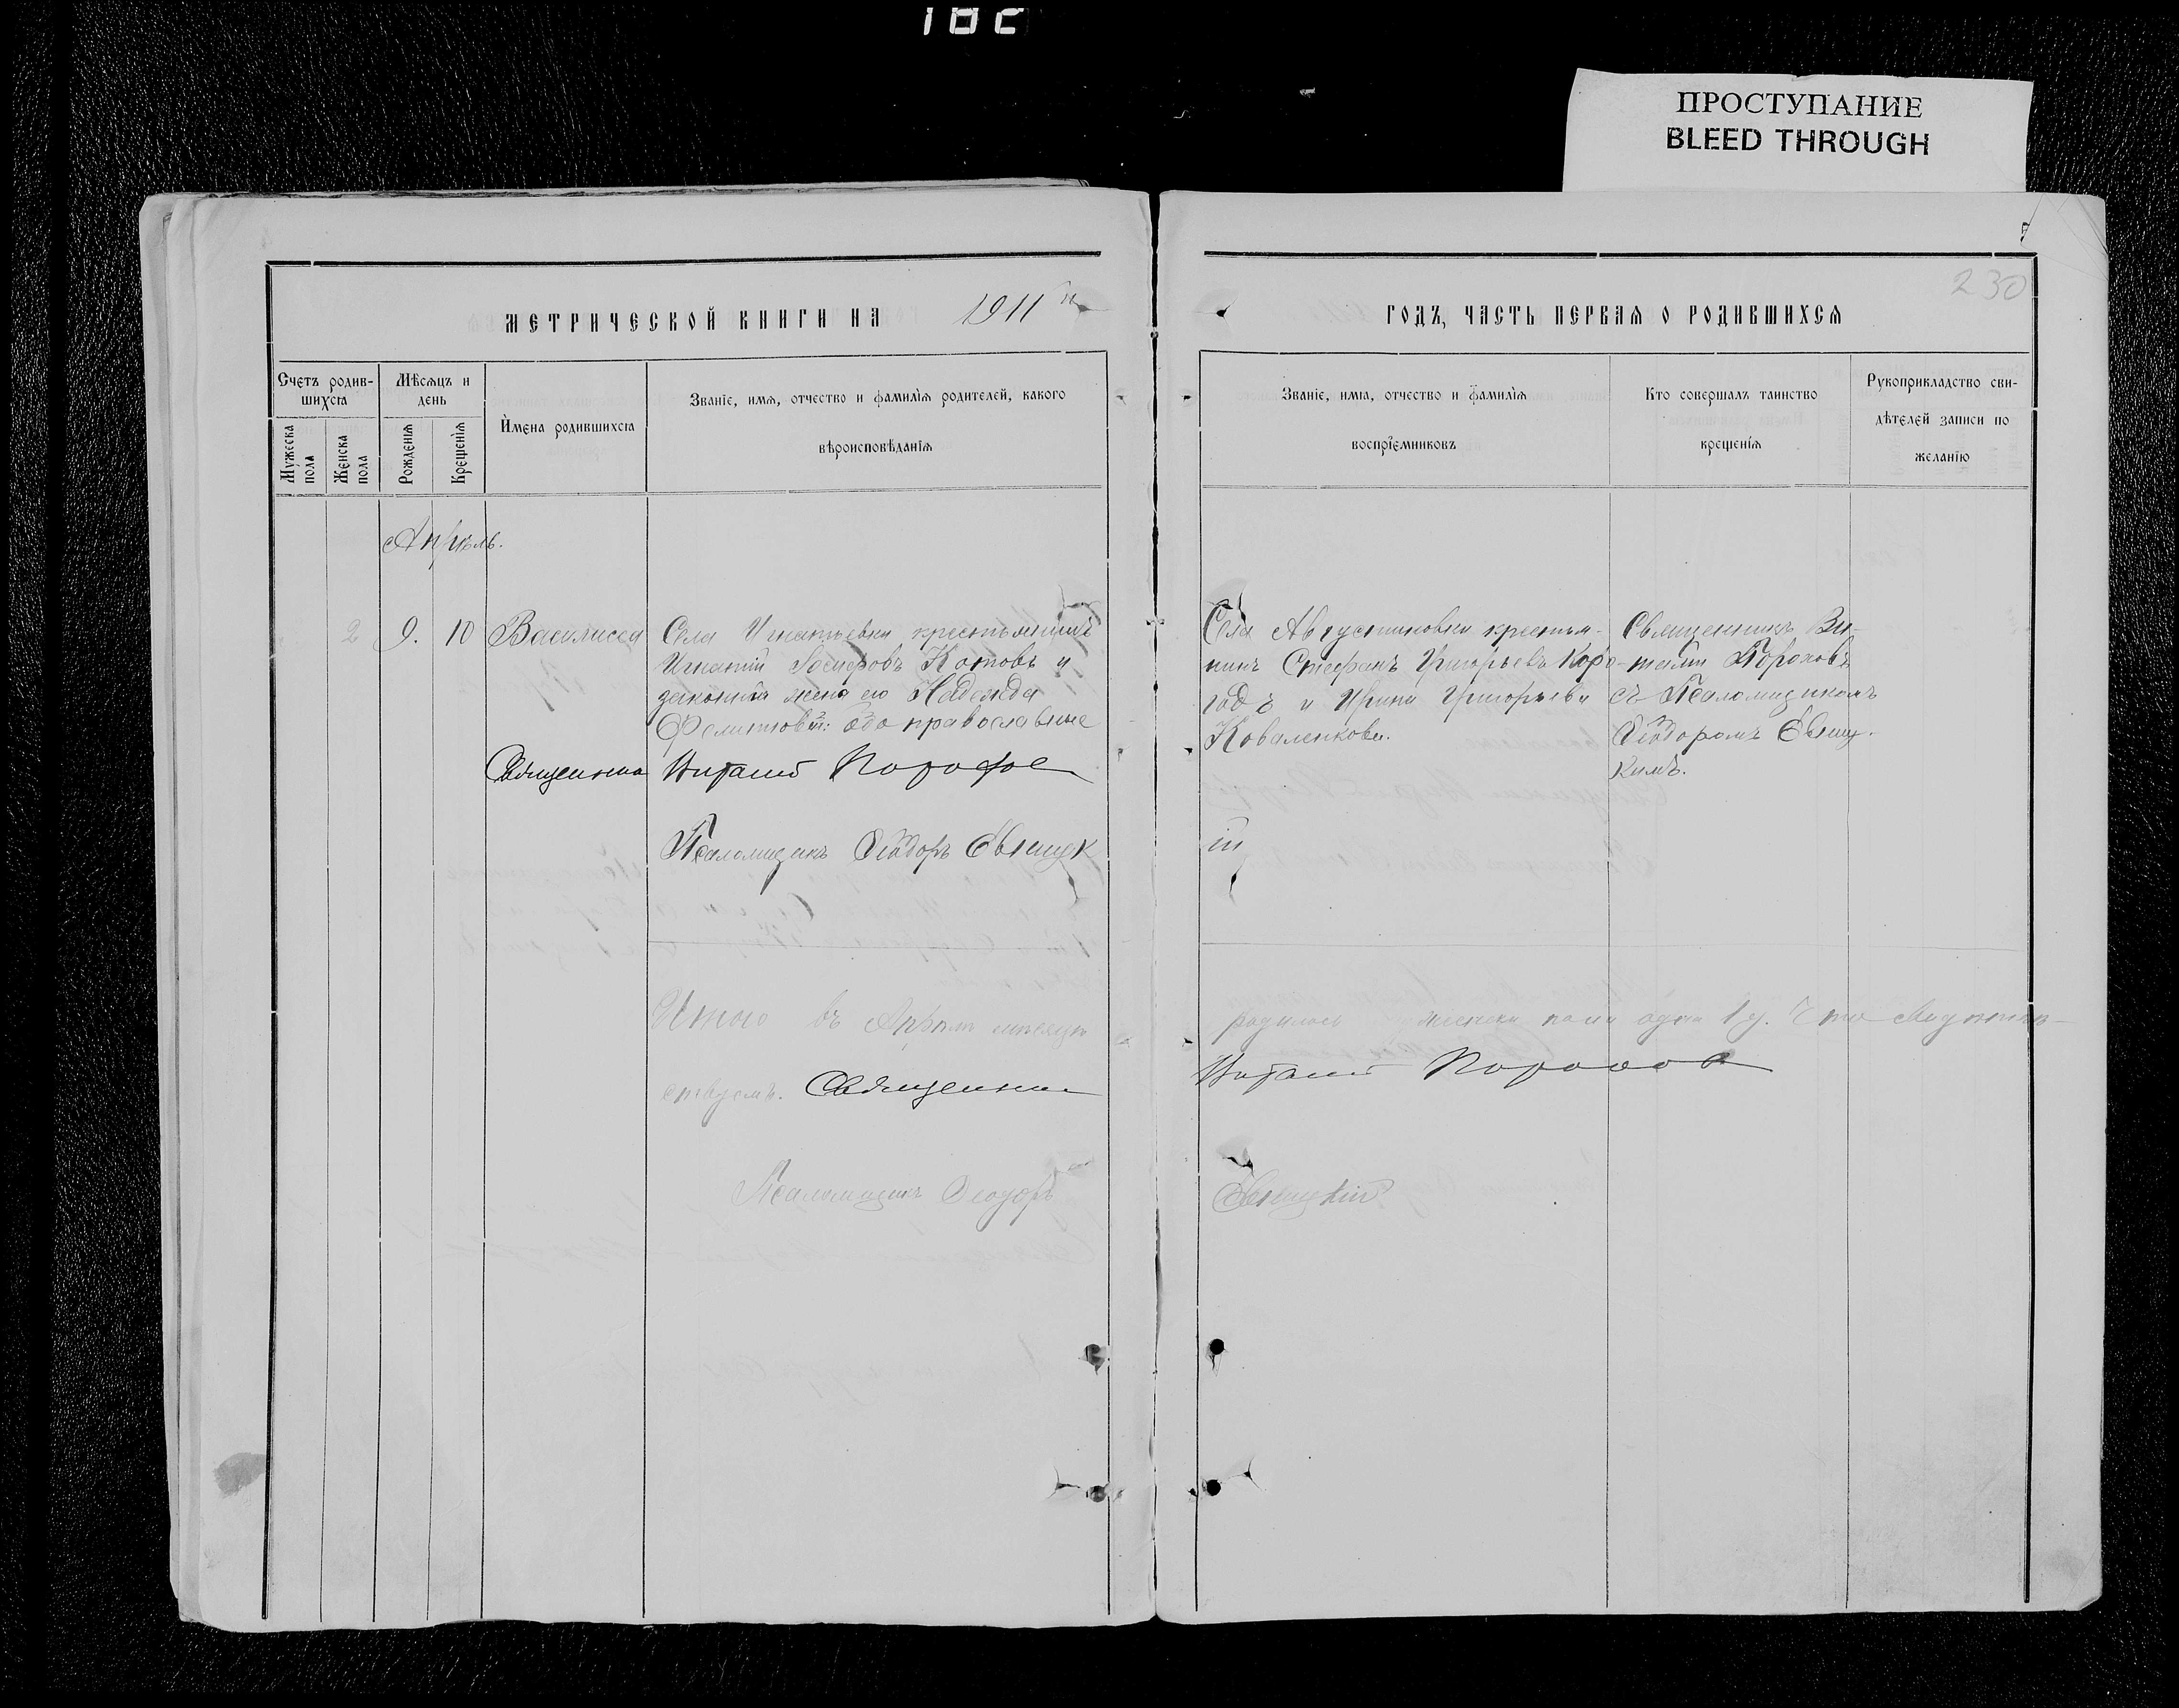 182
ПРОСТУПАНИЕ
BLEED THROUGH
230
МЕТРИЧЕСКОЙ КНИГИ НА 1911 й
ГОДЪ, ЧАСТЬ ПЕРВАЯ О РОДИВШИХСЯ
Счетъ родив-
шихся
Мужеска пола
Женска пола
Мѣсяцъ и
день
Рожденія
Крещенія
Имена родившихся
Званіе, имя, отчество и фамилія родителей, какого
вѣроисповѣданія
Званіе, имя, отчество и фамилія
воспріемниковъ
Кто совершалъ таинство
крещенія
Рукоприкладство сви-
дѣтелей записи по
желанію
Апрѣль.
2 9. 10 Василиса
Села Игнатьевки крестьянинъ
Игнатій Іосифовъ Котовъ и
законная жена его Надежда
оба православные
Села Августиновки крестья-
нинъ Стефанъ Григорьевъ Коро-
годъ и Ирина Григорьева
Коваленкова.
Священникъ Ви-
талій Пороховъ
съ Псаломщикомъ
Ѳеодоромъ
кимъ.
Священникъ Виталій Пороховъ
Псаломщикъ Ѳеодоръ
ій
Итого въ Апрѣлѣ мѣсяцѣ родилось женска пола одна 1 д. Что свидѣтель-
ствуемъ. Священникъ Виталій Пороховъ
Псаломщикъ Ѳеодоръ